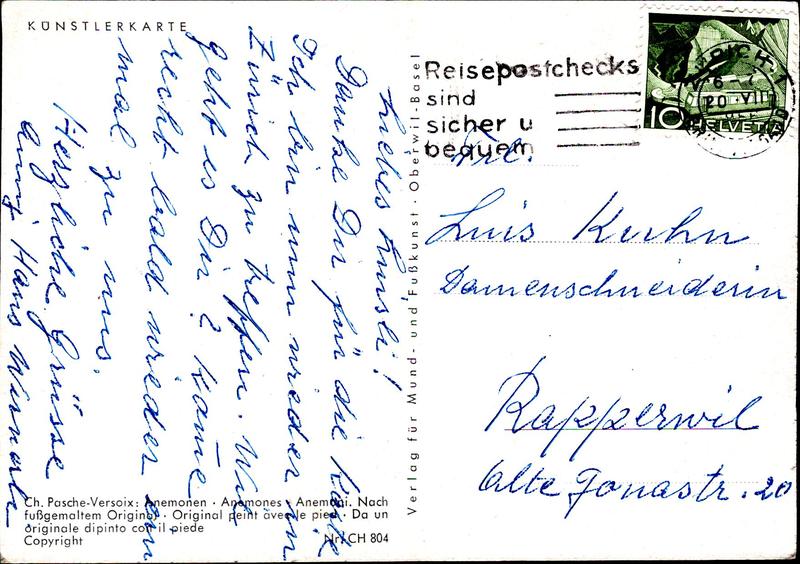 KÜNSTLERKARTE
Liebes
Danke Dir für die Karte
Ich bin nun wieder in
Zürich zu treffen. Wie
geht es Dir? Käme
recht bald wieder ein
mal zu uns.
Herzliche Grüsse
Hans
Ch. Pasche-Versoix: Anemonen · Anemones · Anemoni. Nach
fußgemaltem Original · Original peint avec le pied · Da un
originale dipinto con il piede
Copyright Nr. CH 804
Verlag für Mund- und Fußkunst · Oberwil-Basel
Reisepostchecks
sind
sicher u
bequem
10
HELVETIA
20. VII
Frl.
Luis Kuhn
Damenschneiderin
Rapperswil
Alte Jonastr. 20